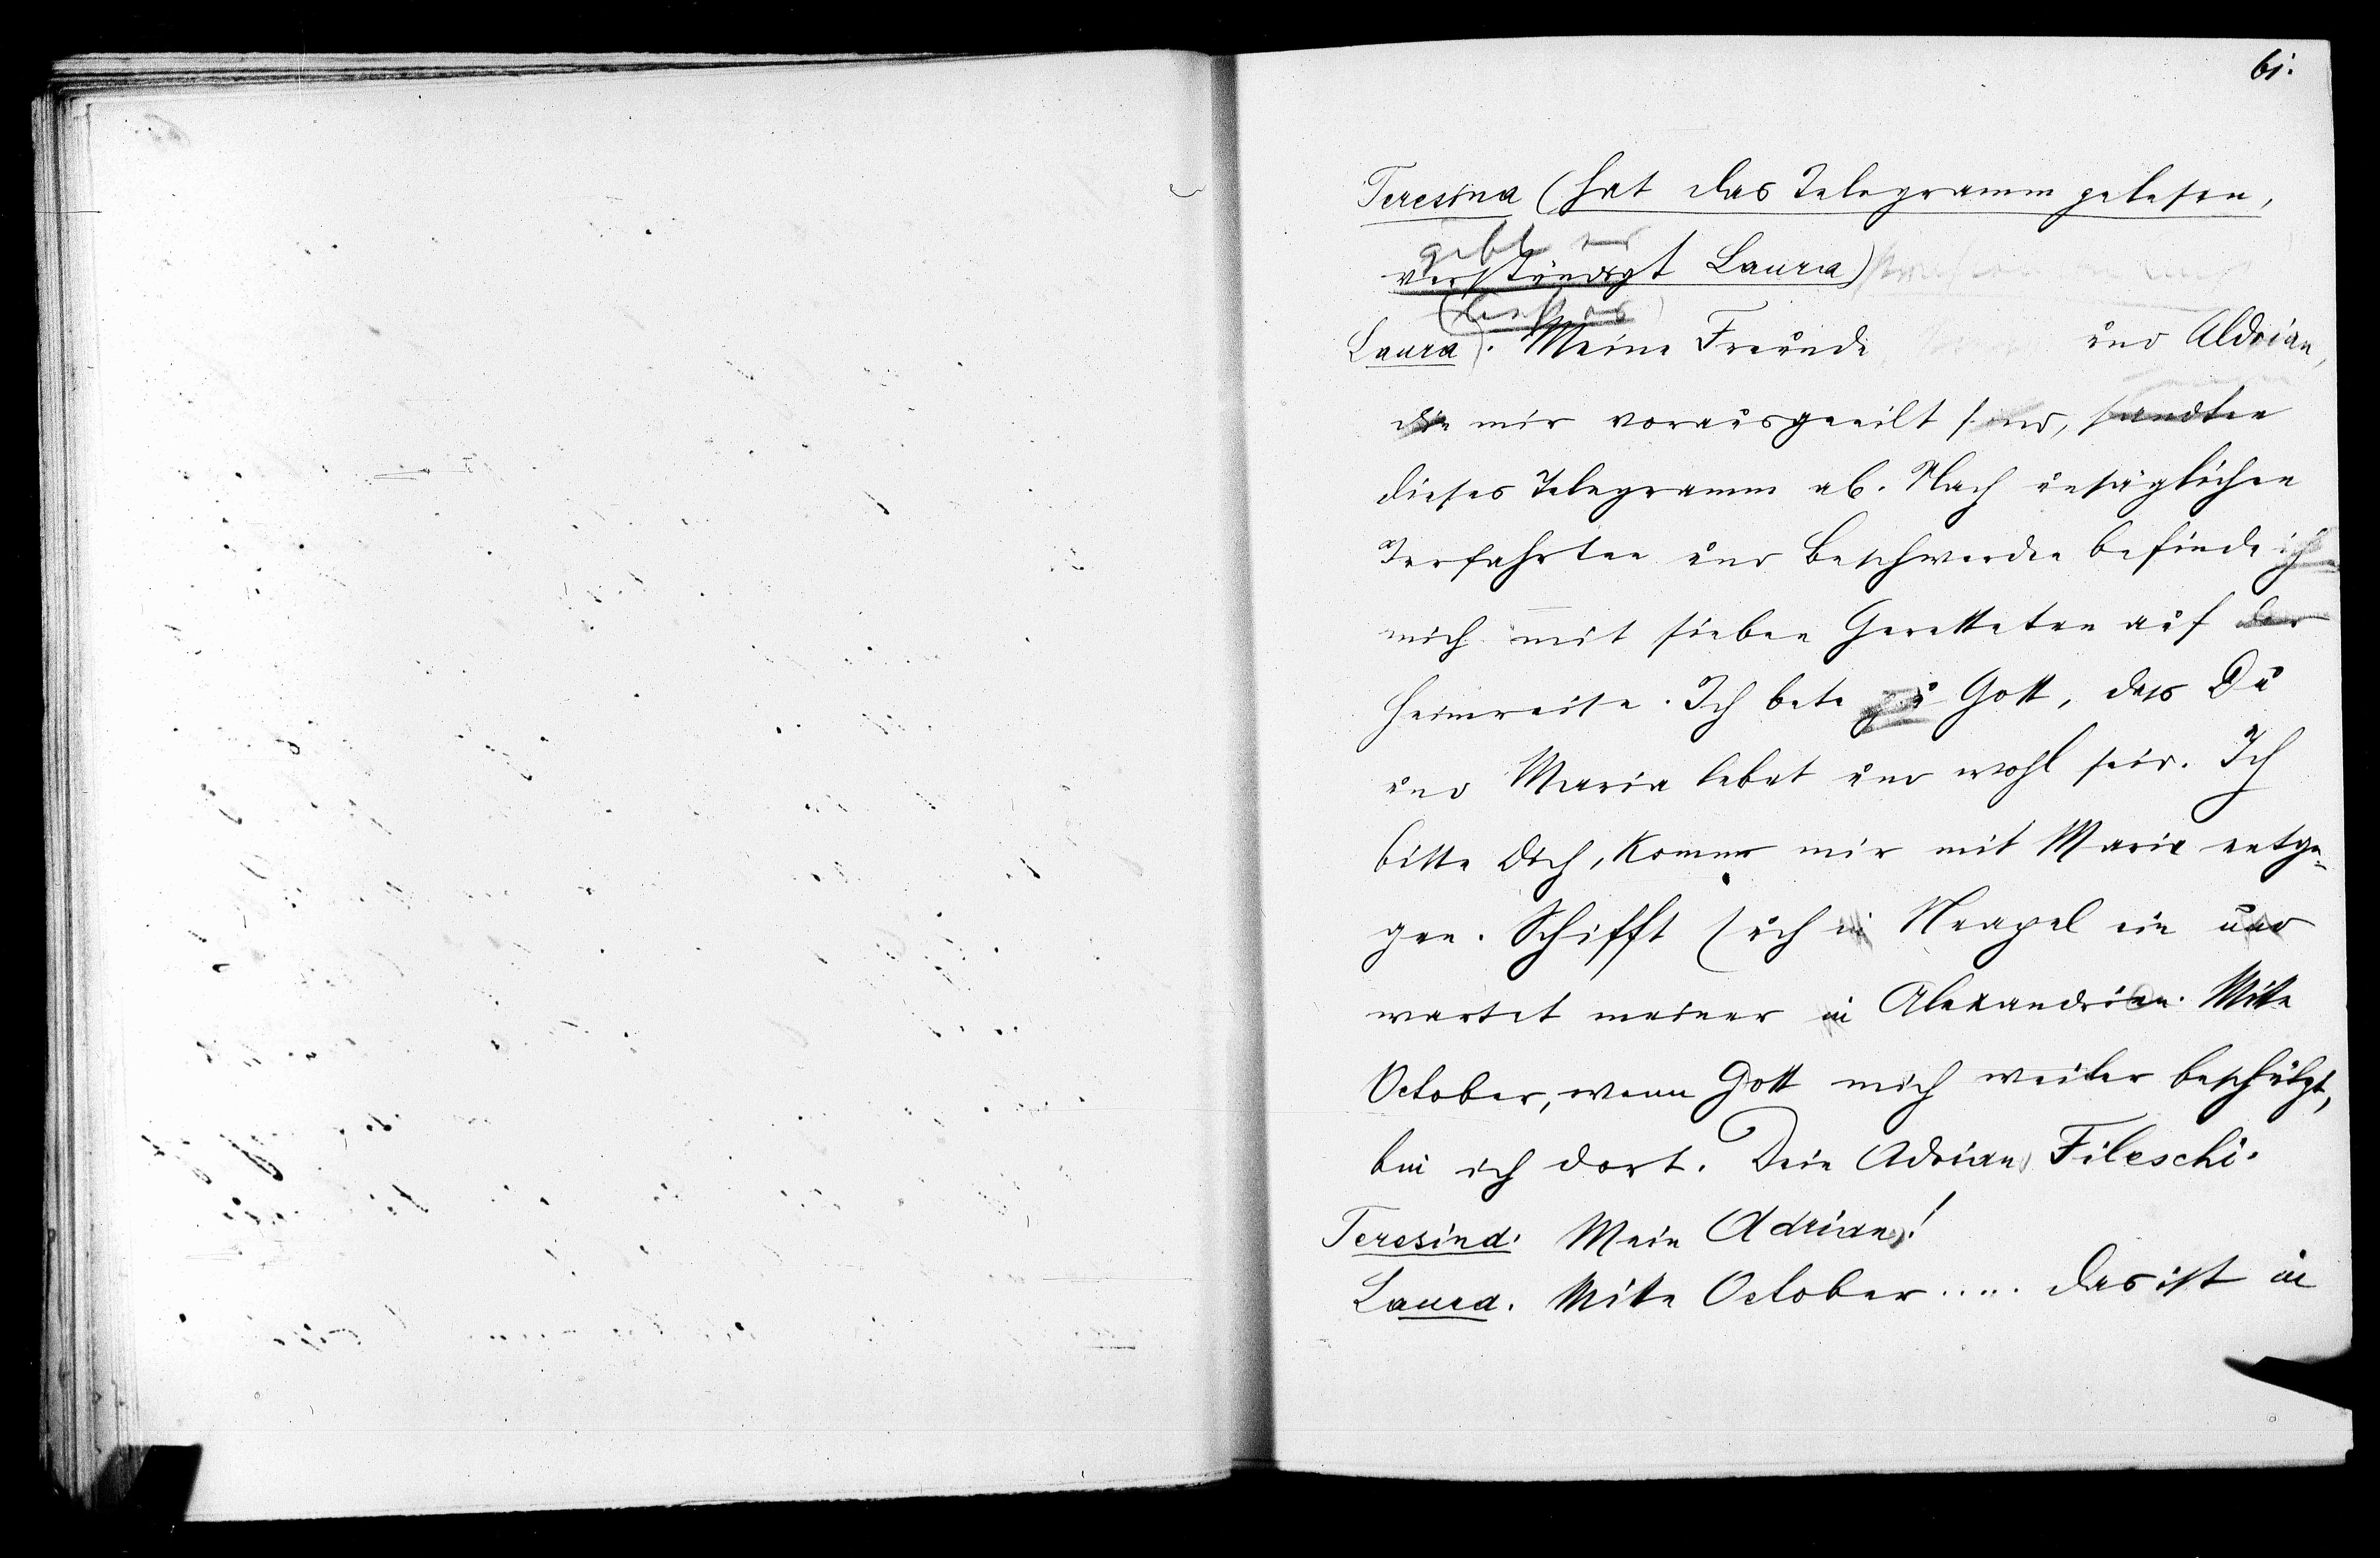 61.
Teresina (hat das Telegramm gelesen,
gibt es
verständigt Laura)
(liest es)
Laura. Meine Freunde und Aldrian,
die mir vorausgeeilt sind, sandten
dieses Telegramm ab. Nach unsäglichen
Irrfahrten und Beschwerden befinde ich
mich mit sieben Geretteten auf der
Heimreise. Ich bete zu Gott, dass Du
und Maria lebet und wohl seid. Ich
bitte Dich, komme mir mit Maria entge-
gen. Schifft Euch in Neapel ein und
wartet meiner in Alexandrien. Mitte
October, wenn Gott mich weiter beschützt,
bin ich dort. Dein Adrian Fileschi.
Teresina. Mein Adrian!
Laura. Mitte October..... das ist in